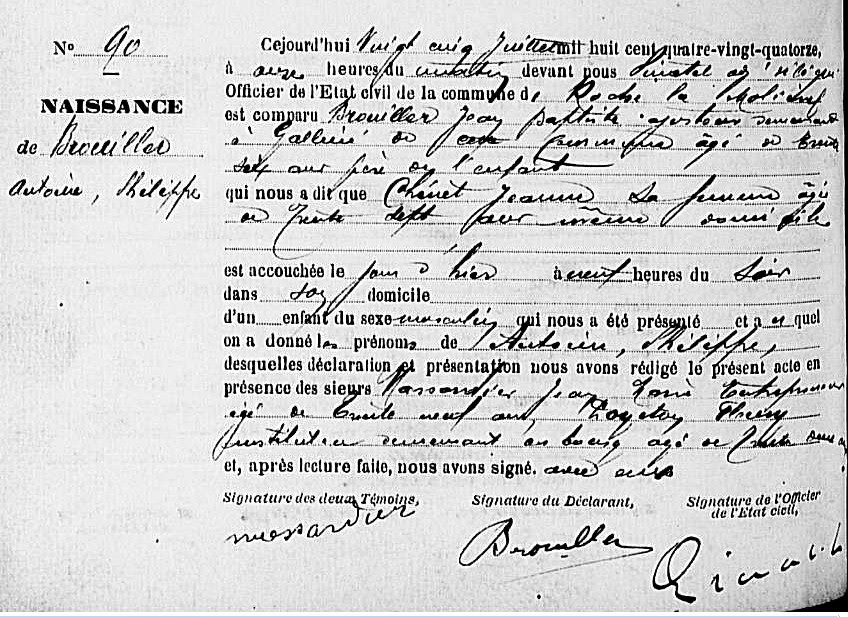 N° 90
NAISSANCE
de Brouiller
Antoine, Philippe
Cejourd'hui Vingt cinq Juillet mil huit cent quatre-vingt-quatorze,
à onze heures du matin devant nous
Officier de l'Etat civil de la commune de Roche la Molière
est comparu Brouiller Jean Baptiste ajusteur demeurant
à de commune âgé de trente
sept ans père de l'enfant
qui nous a dit que Chénet Jeanne sa femme âgée
de trente sept ans même domicile
est accouchée le jour d'hier à neuf heures du soir
dans son domicile
d'un enfant du sexe masculin qui nous a été présenté et a quel
on a donné les prénoms de Antoine, Philippe,
desquelles déclaration et présentation nous avons rédigé le présent acte en
présence des sieurs Massardier Jean Marie Entrepreneur
âgé de trente neuf ans
instituteur demeurant au bourg âgé de trente deux
et, après lecture faite, nous avons signé. avec eux
Signature des deux Témoins,
Signature du Déclarant,
Signature de l'Officier
de l'Etat civil,
Massardier
Brouiller